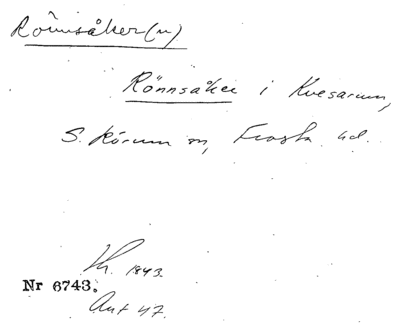 Rönnsåker(n)
Rönnsåker i Kvesarum,
S. Rörum sn, Frosta hd.
1843.
Nr 6743.
Ant 47.